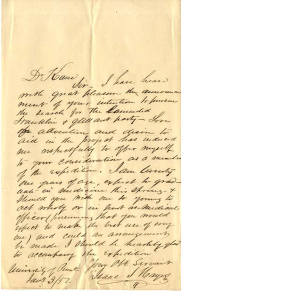 Dr Kane
Sir I have heard
with great pleasure the announce
ment of your intention to pursue
the search for the lamented
Franklin & gallant party. Your
attention and desire to
aid in the project has induced
me respectfully to offer myself
to your consideration as a member
of the expedition. I am twenty
one years of age, expect to gradu
ate in medicine this Spring. &
Should you not think me too young to
act wholly or in part as medical
officer (presuming that you would
expect to make the best use of
me) and could an arrangement
be made I should be heartily glad
to accompany the expedition
University of Penn Your Obt Servant
Isaac I Hayes